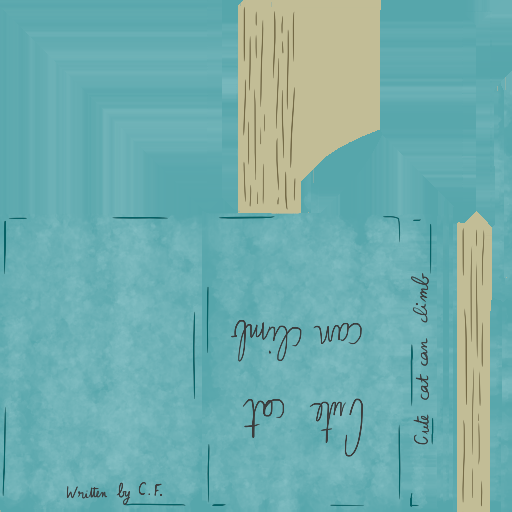 Cute cat
can climb
Cute cat can climb
Written by C.F.